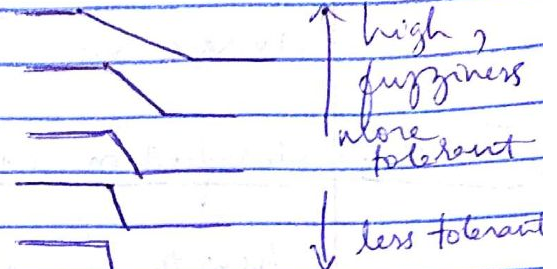 high,
fuzziness
more
tolerant
less tolerant